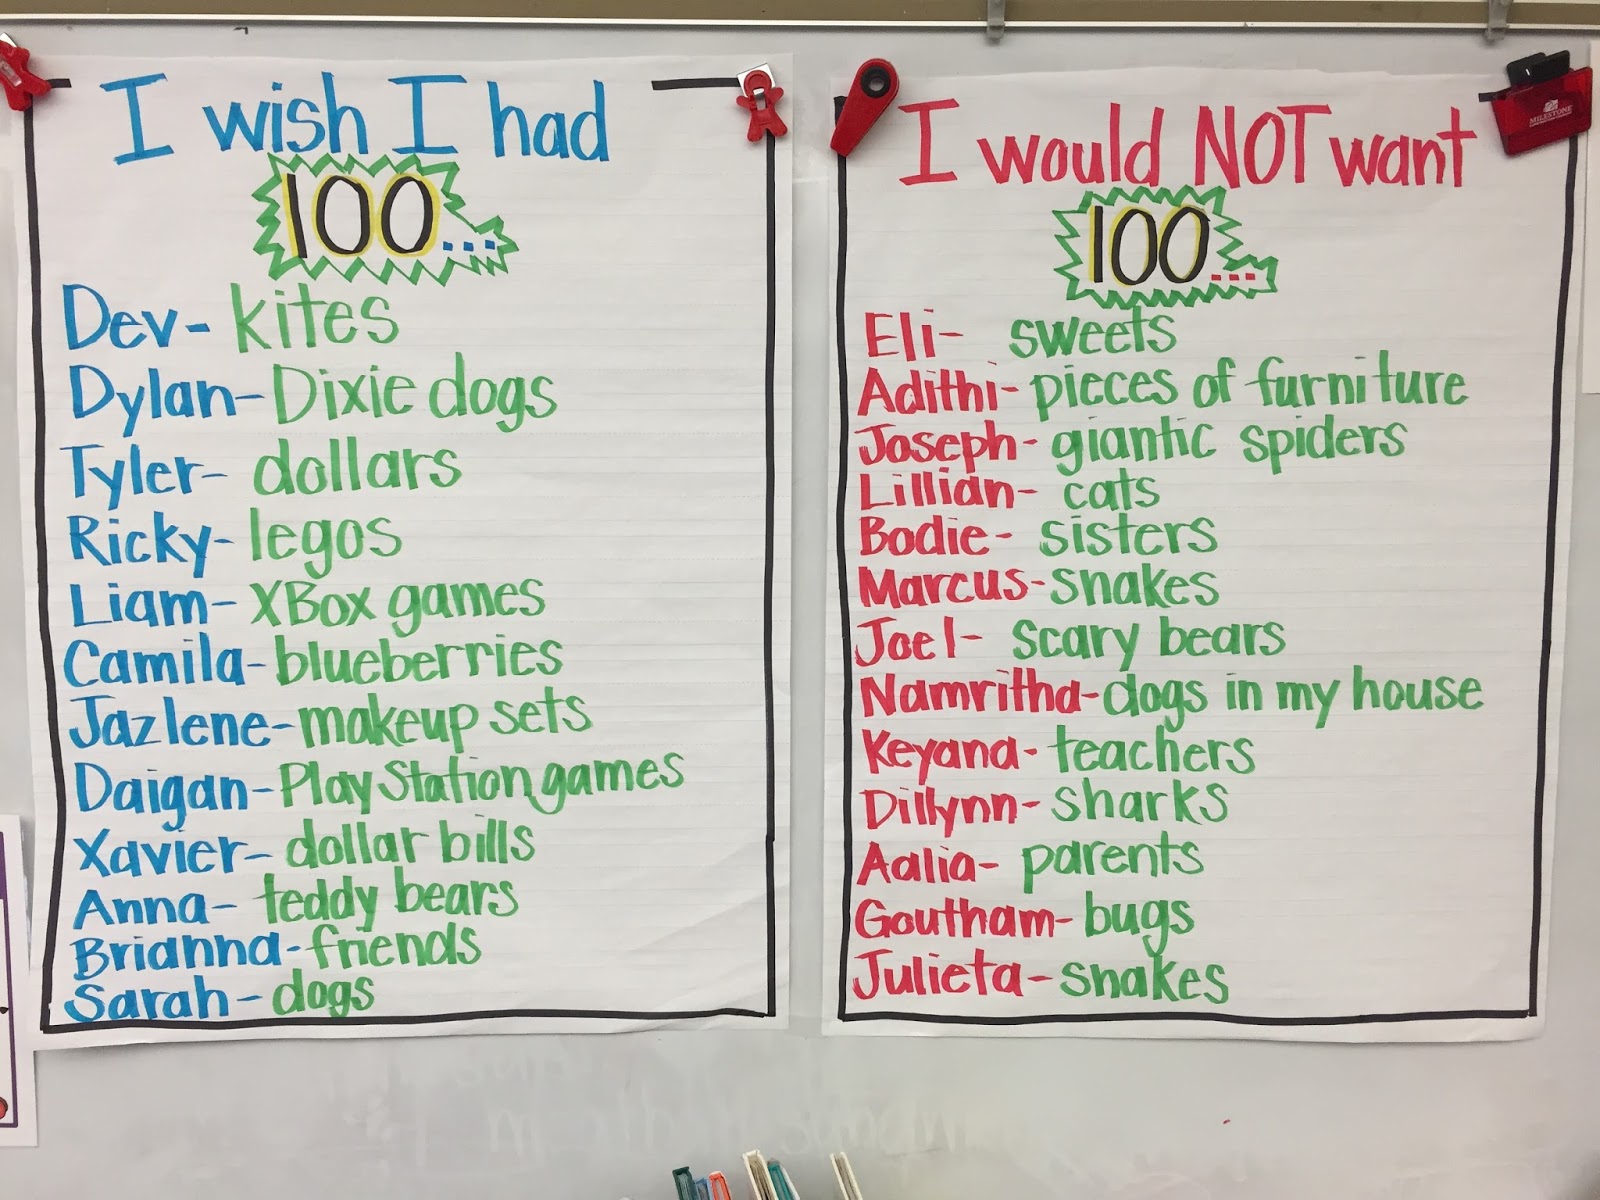 I wish I had
100...
Dev- kites
Dylan- Dixie dogs
Tyler- dollars
Ricky- legos
Liam- XBox games
Camila- blueberries
Jazlene- makeup sets
Daigan- PlayStation games
Xavier- dollar bills
Anna- teddy bears
Brianna- friends
Sarah- dogs
I would NOT want
100...
Eli- sweets
Adithi- pieces of furniture
Joseph- giantic spiders
Lillian- cats
Bodie- sisters
Marcus- snakes
Joel- scary bears
Namritha- dogs in my house
Keyana- teachers
Dillynn- sharks
Aalia- parents
Goutham- bugs
Julieta- snakes
MILESTONE